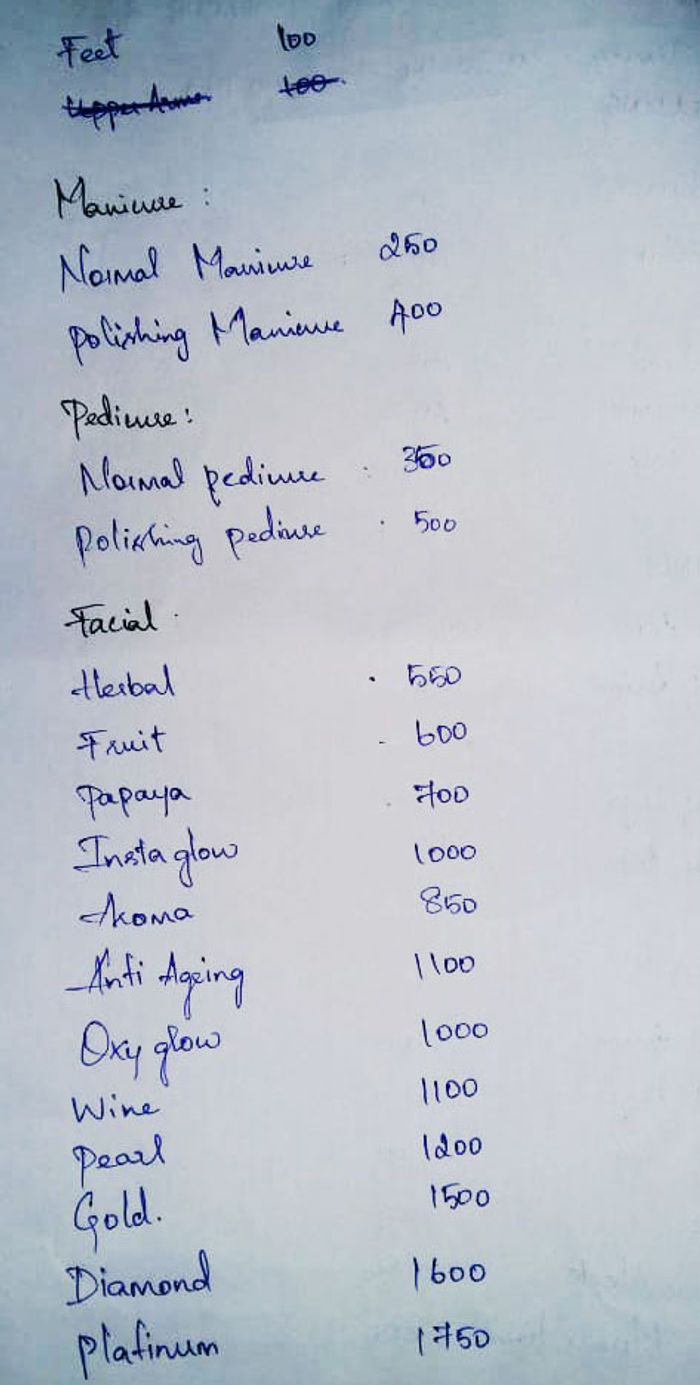 Feet 100
Upper Arms 100.
Manicure :
Normal Manicure : 250
Polishing Manicure 400
Pedicure :
Normal pedicure : 350
Polishing pedicure . 500
Facial .
Herbal . 550
Fruit - 600
Papaya . 700
Insta glow 1000
Aroma 850
Anti Ageing 1100
Oxy glow 1000
Wine 1100
Pearl 1200
Gold. 1500
Diamond 1600
Platinum 1750